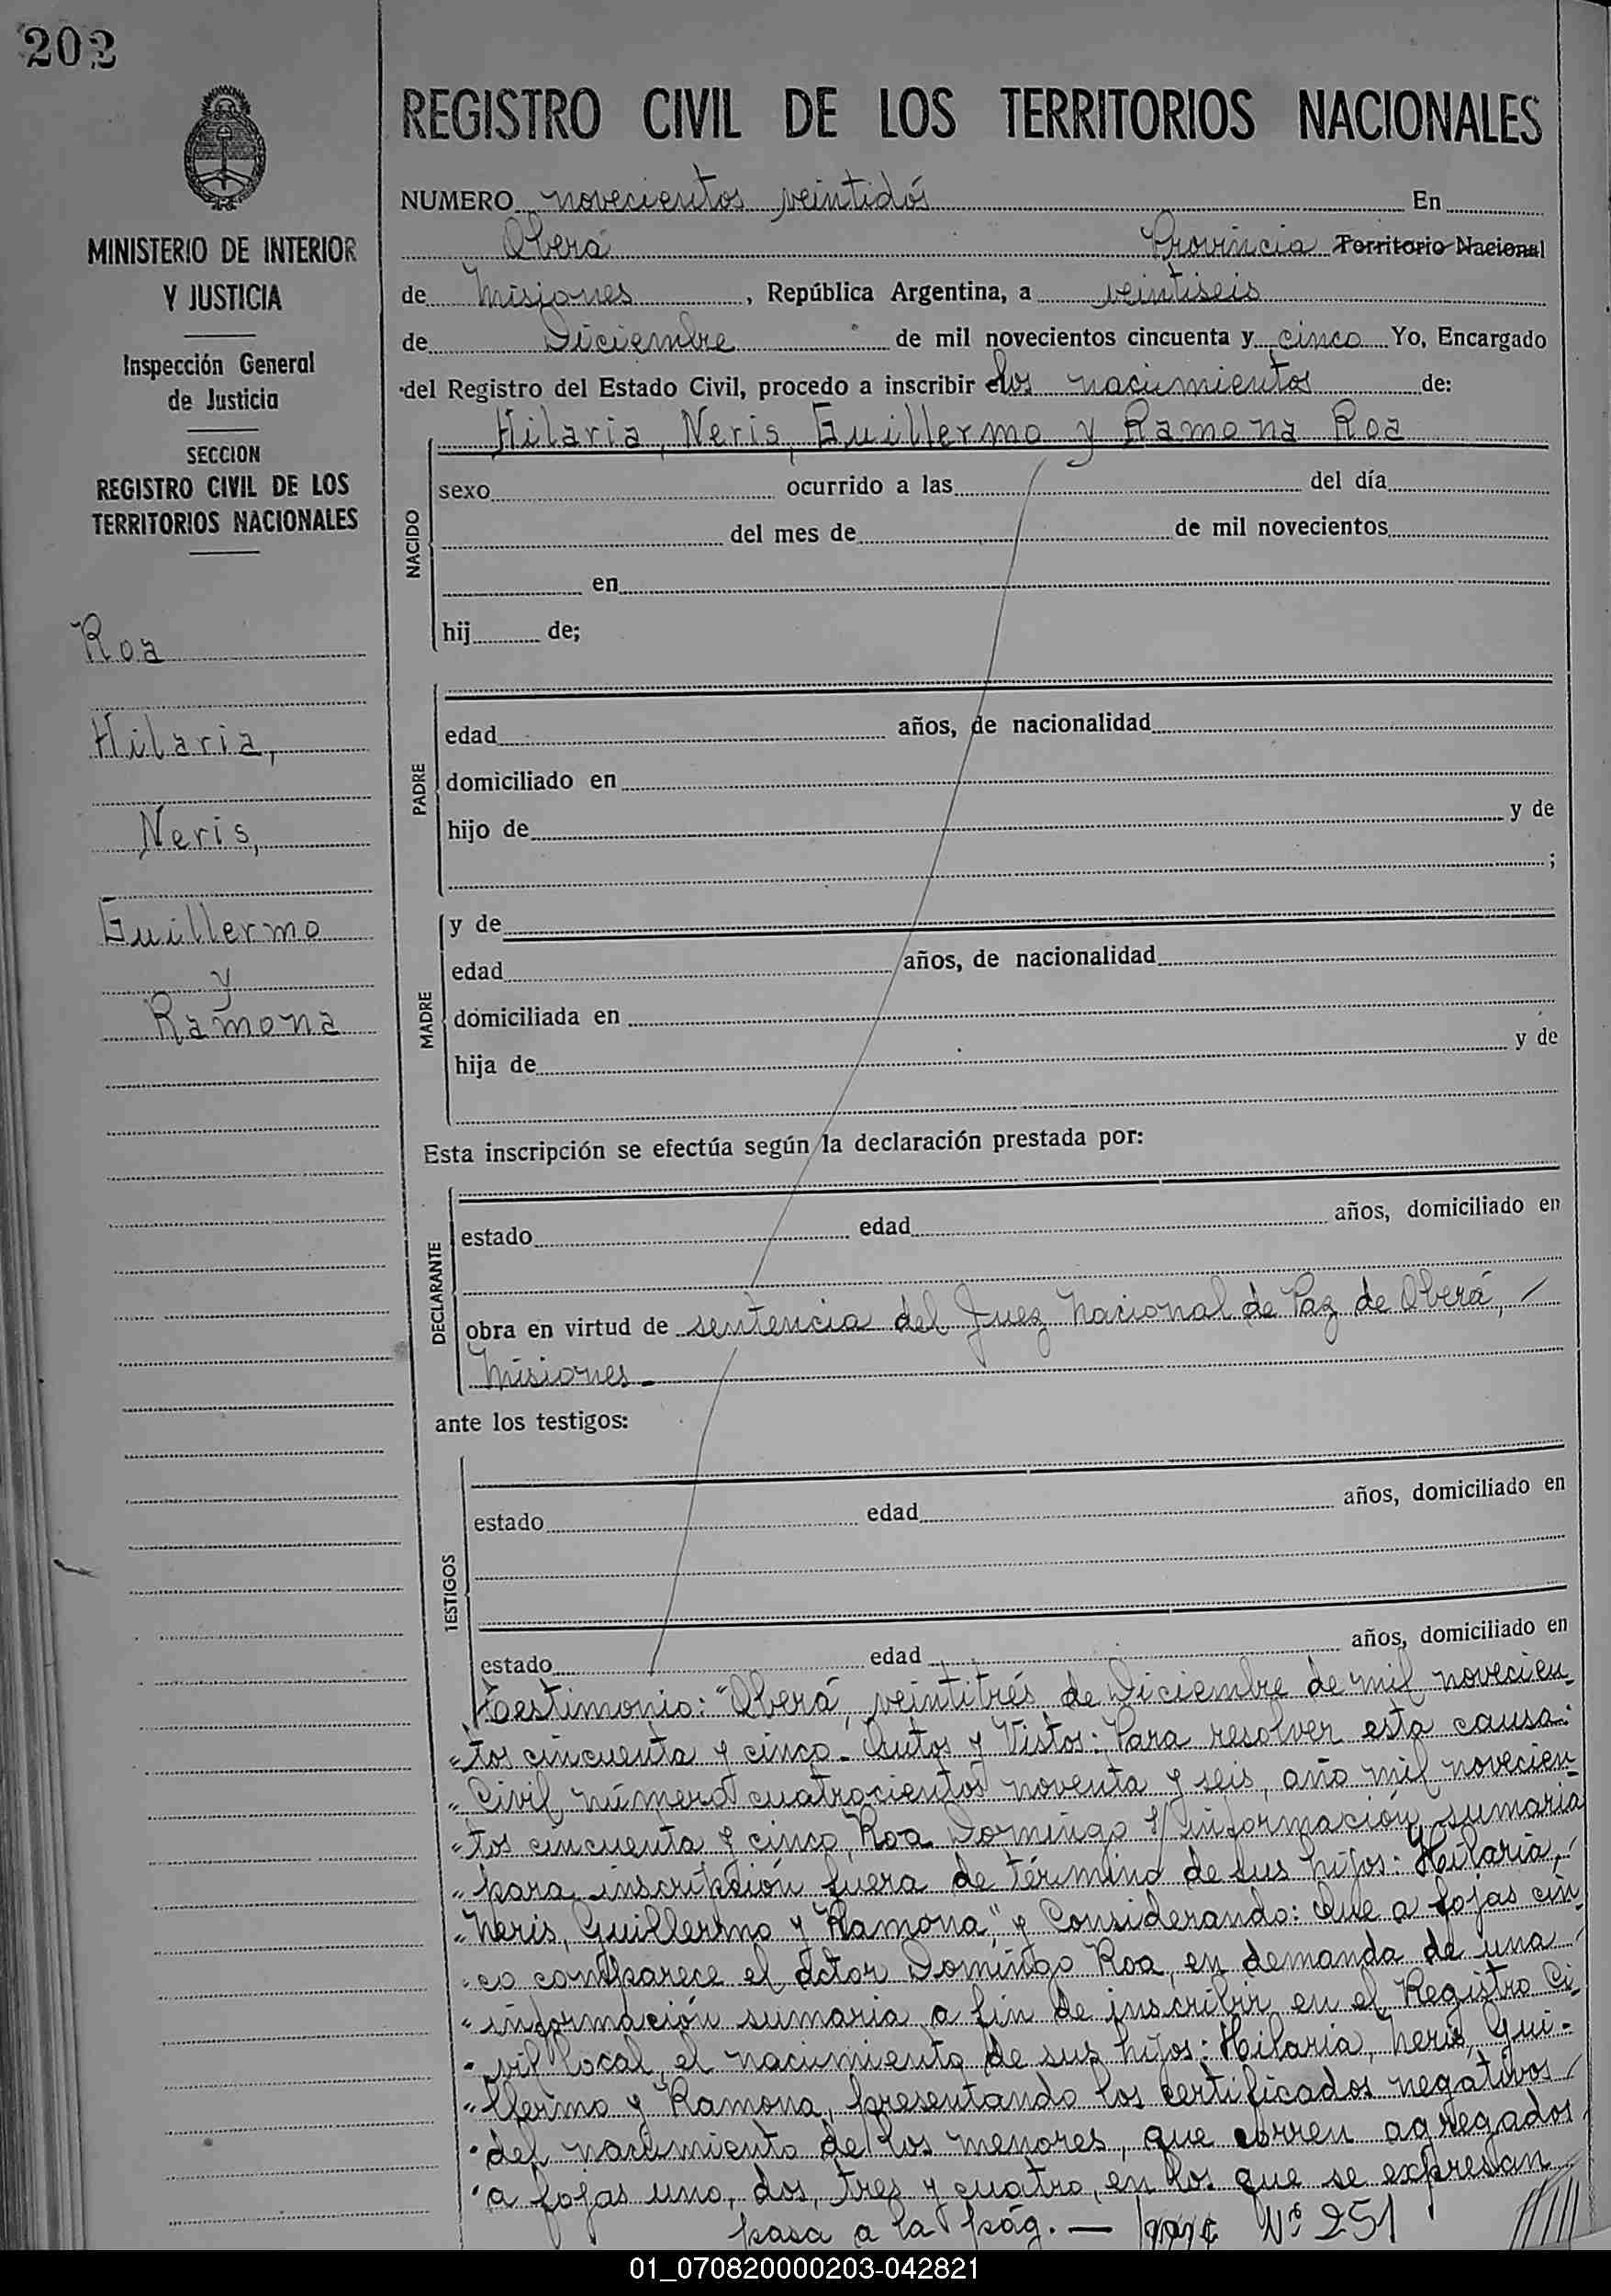 202
REGISTRO CIVIL DE LOS TERRITORIOS NACIONALES
MINISTERIO DE INTERIOR
Y JUSTICIA
Inspección General
de Justicia
SECCION
REGISTRO CIVIL DE LOS
TERRITORIOS NACIONALES
Roa
Hilaria,
Neris,
Guillermo
y
Ramona
NUMERO novecientos veintidós En
Oberá Provincia Territorio Nacional
de Misiones, República Argentina, a veintiseis
de Diciembre de mil novecientos cincuenta y cinco Yo, Encargado
del Registro del Estado Civil, procedo a inscribir los nacimientos de:
Hilaria, Neris, Guillermo y Ramona Roa
NACIDO
sexo ocurrido a las del día
del mes de de mil novecientos
en
hij de;
PADRE
edad años, de nacionalidad
domiciliado en
hijo de y de
;
MADRE
y de
edad años, de nacionalidad
domiciliada en
hija de y de
Esta inscripción se efectúa según la declaración prestada por:
DECLARANTE
estado edad años, domiciliado en
obra en virtud de sentencia del Juez Nacional de Paz de Oberá,
Misiones.-
ante los testigos:
TESTIGOS
estado edad años, domiciliado en
estado edad años, domiciliado en
Testimonio: "Oberá, veintitrés de Diciembre de mil novecien
"tos cincuenta y cinco.- Autos y Vistos: Para resolver esta causa:
"Civil número cuatrocientos noventa y seis, año mil novecien
"tos cincuenta y cinco, Roa Domingo s/ información sumaria
"para inscripción fuera de término de sus hijos: Hilaria,
"Neris, Guillermo y Ramona", y Considerando: Que a fojas cin
"co comparece el actor Domingo Roa, en demanda de una
"información sumaria a fin de inscribir en el Registro Ci
"vil local, el nacimiento de sus hijos: Hilaria, Neris, Gui-
"llermo y Ramona, presentando los certificados negativos
"del nacimiento de los menores, que corren agregados
"a fojas uno, dos, tres y cuatro, en los que se expresan
pasa a la pág. — Nº 251
01_070820000203-042821